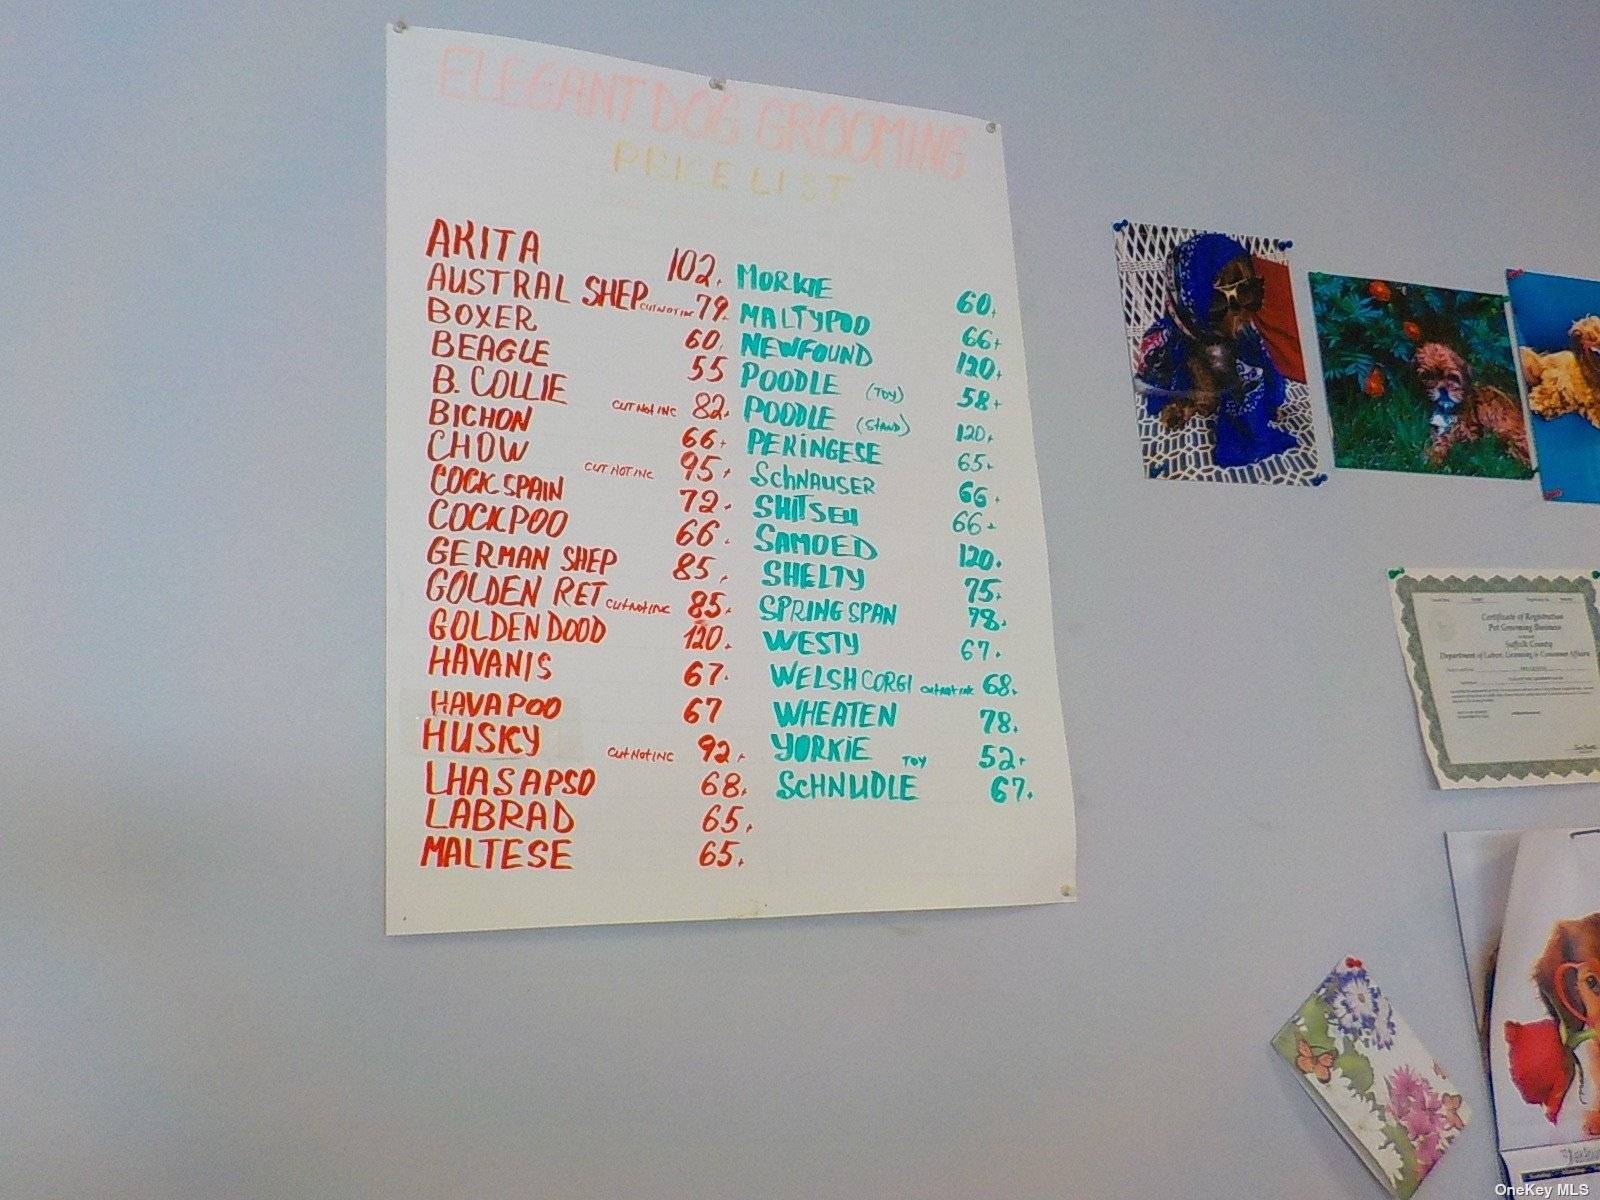 ELEGANT DOG GROOMING
PRICE LIST
AKITA 102.
AUSTRAL SHEP CUT NOT INC 79.
BOXER 60.
BEAGLE 55
B. COLLIE CUT NOT INC 82.
BICHON 66.
CHOW CUT NOT INC 95.
COCK SPAIN 72.
COCKPOO 66.
GERMAN SHEP 85.
GOLDEN RET CUT NOT INC 85.
GOLDEN DOOD 120.
HAVANIS 67.
HAVAPOO 67
HUSKY CUT NOT INC 92.
LHASAPSO 68.
LABRAD 65.
MALTESE 65.
MORKIE 60.
MALTYPOO 66.
NEWFOUND 120.
POODLE (TOY) 58.
POODLE (STAND) 120.
PEKINGESE 65.
SCHNAUSER 66.
SHITSEU 66.
SAMOED 120.
SHELTY 75.
SPRING SPAN 78.
WESTY 67.
WELSH CORGI CUT NOT INC 68.
WHEATEN 78.
YORKIE TOY 52.
SCHNUDLE 67.
Certificate of Registration
Pet Grooming Business
Suffolk County
Department of Labor, Licensing & Consumer Affairs
OneKey MLS